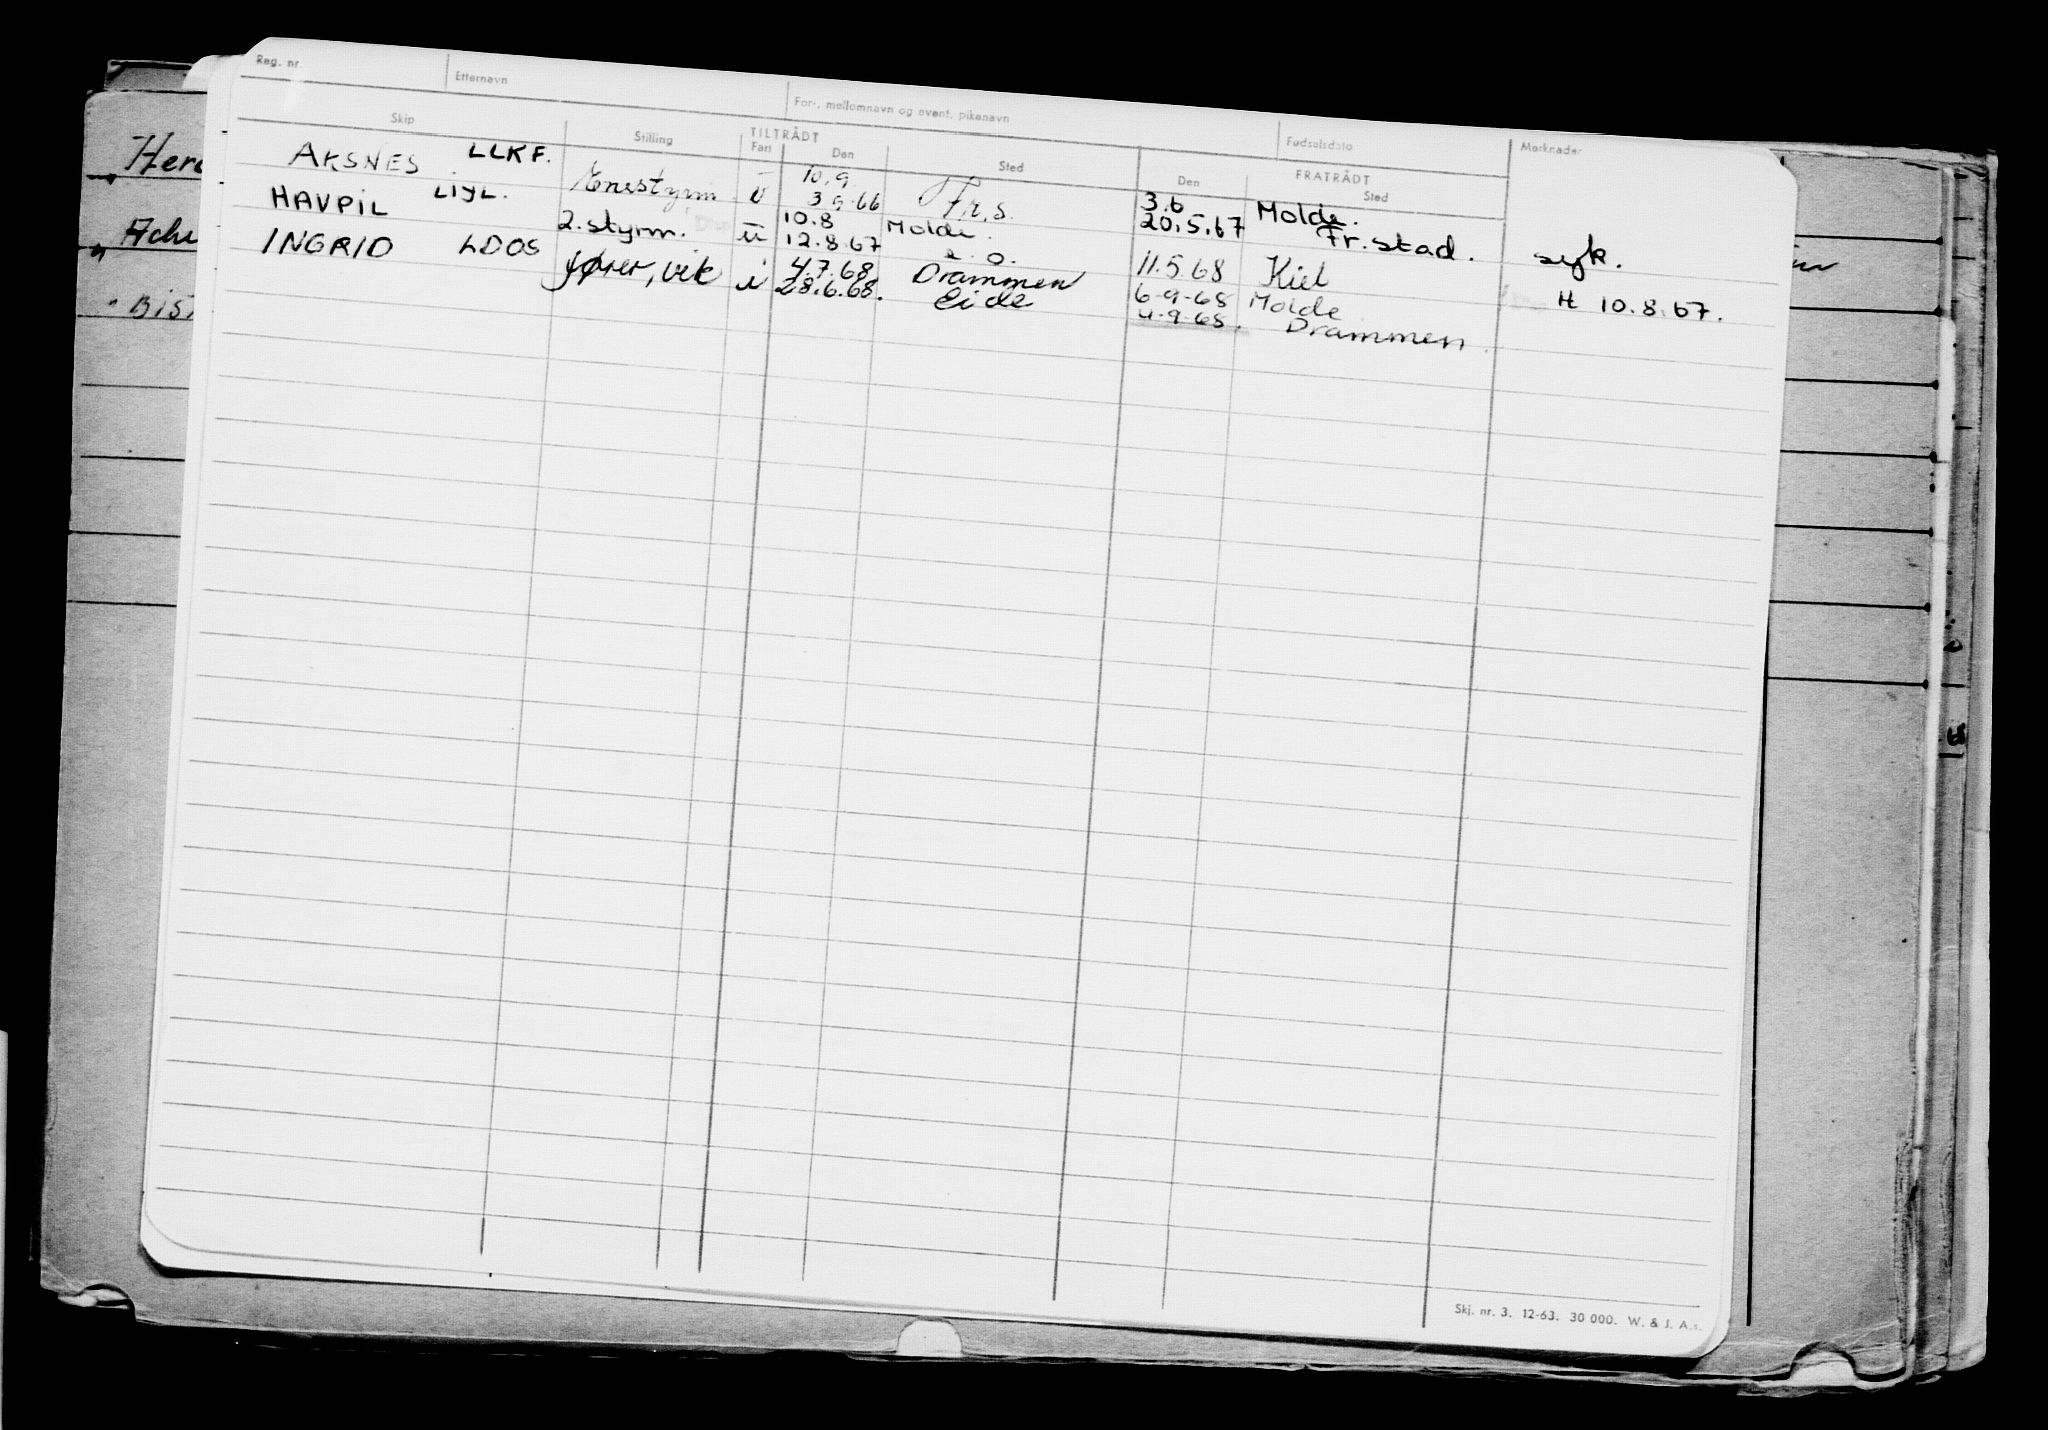 Reg. nr. Etternavn For-, mellomnavn og event. pikenavn Fødselsdato Merknader
Skip Stilling TILTRÅDT FRATRÅDT
Fart Den Sted Den Sted
AKSNES LLKF. Enestyrm u 10.9 3.9.66 Fr.s. 3.6 20.5.67 Molde. Fr.stad. syk.
HAVPIL LIYL. 2.styrm. u 10.8 12.8.67 Molde. 11.5.68 Kiel H 10.8.67.
INGRID LDOS fører, vik i 4.7.68 28.6.68. Drammen Eide 6-9-68 4-9-68. Molde Drammen.
Skj. nr. 3. 12-63. 30 000. W. & J. A.s.